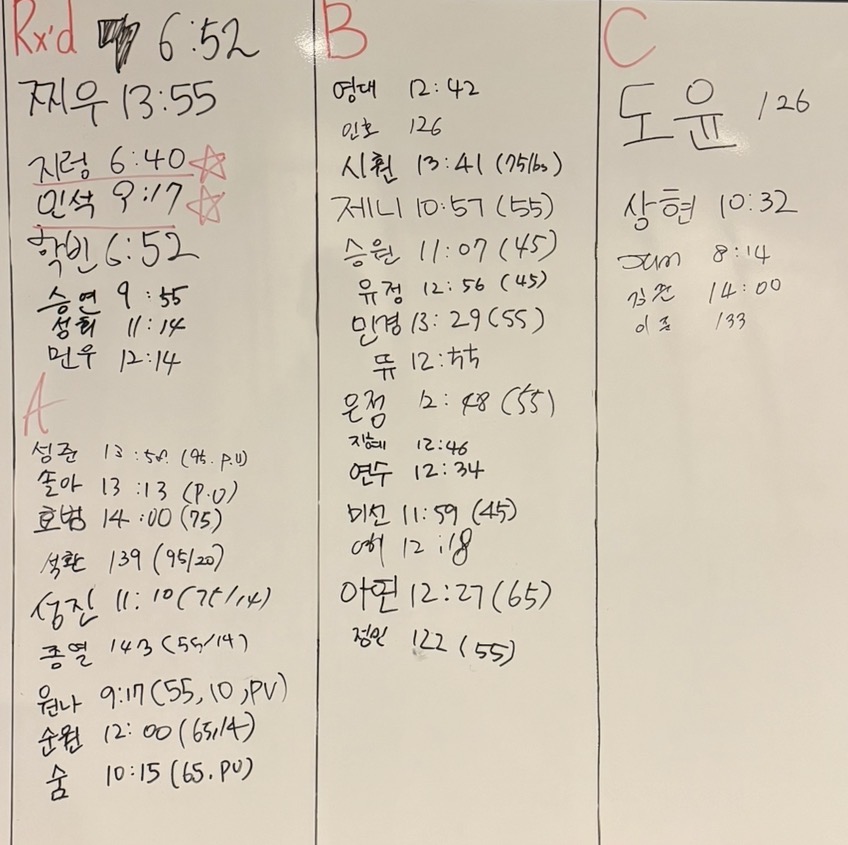 Rx'd 6:52
찌우 13:55
지렁 6:40
민석 9:17
학빈 6:52
승연 9:55
성희 11:14
민우 12:14
A
성준 13:58 (95. P.U)
솔아 13:13 (P.U)
호범 14:00 (75)
석환 139 (95/20)
성진 11:10 (75/14)
종열 143 (55/14)
원나 9:17 (55, 10, PU)
순원 12:00 (65/14)
숨 10:15 (65. PU)
B
영대 12:42
인호 126
시훤 13:41 (75lbs)
제니 10:57 (55)
승원 11:07 (45)
유정 12:56 (45)
민경 13:29 (55)
뜌 12:55
은정 12:48 (55)
지혜 12:46
연수 12:34
미선 11:59 (45)
12:18
아띤 12:27 (65)
정인 122 (55)
C
도윤 126
상현 10:32
8:14
14:00
이준 133